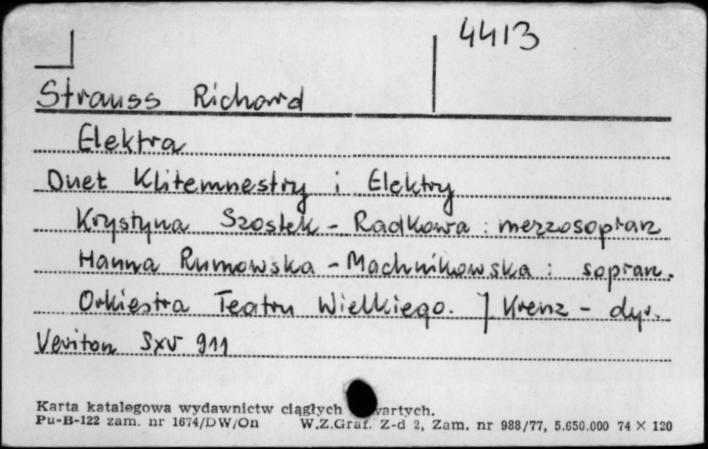 4413
Strauss Richard
Elektra
Duet Klitemnestry i Elektry
Krystyna Szostek - Radkowa : mezzosopran
Hanna Rumowska - Machnikowska : sopran.
Orkiestra Teatru Wielkiego. J Krenz - dyr.
Veriton SXV 911
Karta katalogowa wydawnictw ciągłych wartych.
Pu-B-122 zam. nr 1674/DW/On W.Z.Graf. Z-d 2, Zam. nr 988/77, 5.650.000 74 × 120